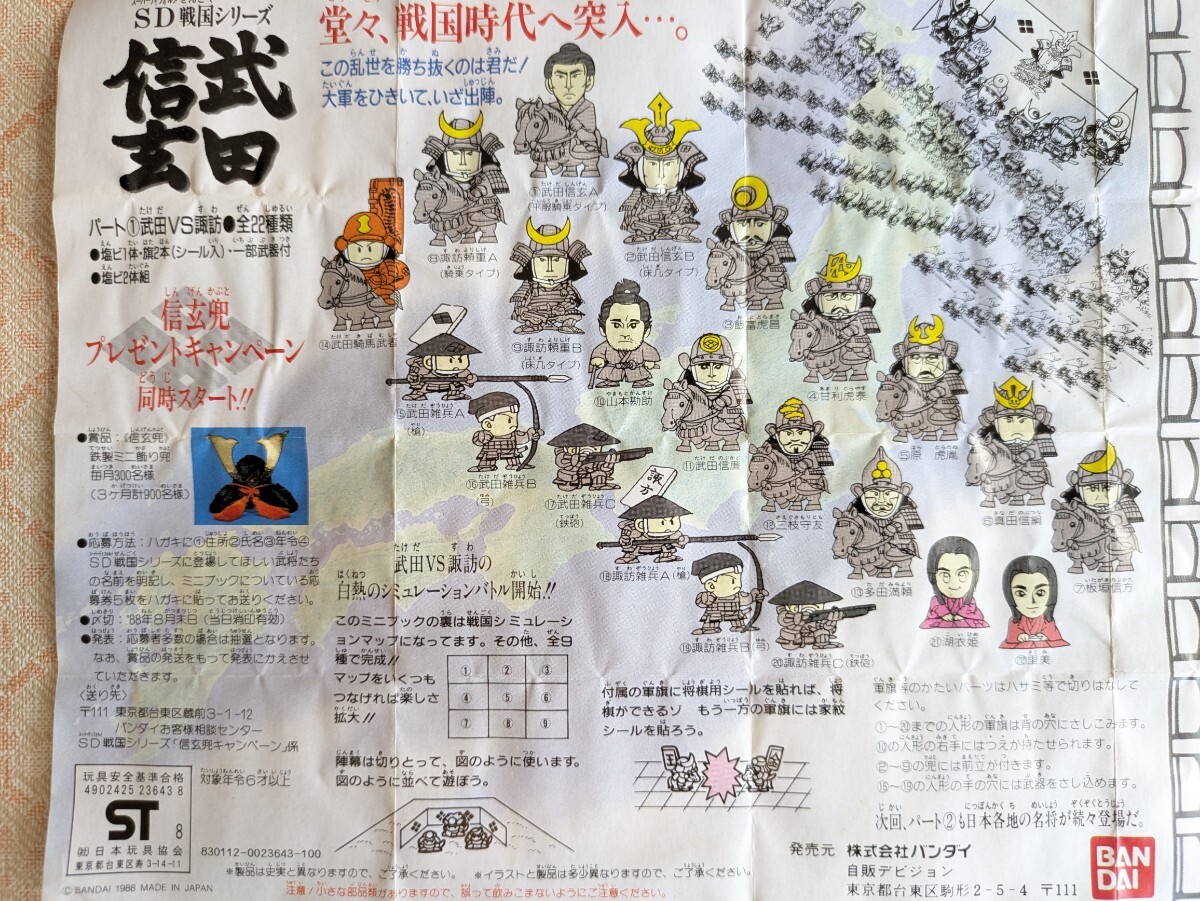 SD戦国シリーズ
武田
信玄
堂々、戦国時代へ突入…。
この乱世を勝ち抜くのは君だ!
大軍をひきいて、いざ出陣。
パート①武田VS諏訪●全22種類
●塩ビ1体・旗2本(シール入)・一部武器付
●塩ビ2体組
信玄兜
プレゼントキャンペーン
同時スタート!!
●賞品:〈信玄兜〉
鉄製ミニ飾り兜
毎月300名様
(3ヶ月計900名様)
●応募方法:ハガキに①住所②氏名③年令④
SD戦国シリーズに登場してほしい武将たち
の名前を明記し、ミニブックについている応
募券5枚をハガキに貼ってお送りください。
●〆切:'88年8月末日(当日消印有効)
●発表:応募者多数の場合は抽選となります。
なお、賞品の発送をもって発表にかえさせ
ていただきます。
〈送り先〉
〒111 東京都台東区蔵前3-1-12
バンダイお客様相談センター
SD戦国シリーズ「信玄兜キャンペーン」係
玩具安全基準合格
4902425 23643 8
ST 8
(社)日本玩具協会
東京都台東区寿3-14-11
対象年令6才以上
830112-0023643-100
©BANDAI 1988 MADE IN JAPAN
①武田信玄A
(平服騎乗タイプ)
②武田信玄B
(床几タイプ)
③飯富虎昌
④甘利虎泰
⑤原 虎胤
⑥真田信綱
⑦板垣信方
⑧諏訪頼重A
(騎乗タイプ)
⑨諏訪頼重B
(床几タイプ)
⑩山本勘助
⑪武田信廉
⑫三枝守友
⑬多田満頼
⑭武田騎馬武者
⑮武田雑兵A
(槍)
⑯武田雑兵B
(弓)
⑰武田雑兵C
(鉄砲)
諏方
⑱諏訪雑兵A(槍)
⑲諏訪雑兵B(弓)
⑳諏訪雑兵C(鉄砲)
㉑湖衣姫
㉒里美
武田VS諏訪の
白熱のシミュレーションバトル開始!!
このミニブックの裏は戦国シミュレーシ
ョンマップになってます。その他、全9
種で完成!!
マップをいくつも
つなければ楽しさ
拡大!!
① ② ③
④ ⑤ ⑥
⑦ ⑧ ⑨
陣幕は切りとって、図のように使います。
図のように並べて遊ぼう。
付属の軍旗に将棋用シールを貼れば、将
棋ができるゾ もう一方の軍旗には家紋
シールを貼ろう。
軍旗等のかたいパーツはハサミ等で切りはなして
ください。
①~⑳までの人形の軍旗は背の穴にさしこみます。
⑩の人形の右手にはつえが持たせられます。
②~⑨の兜には前立が付きます。
⑮~⑲の人形の手の穴には武器をさし込めます。
次回、パート②も日本各地の名将が続々登場だ。
発売元 株式会社バンダイ
自販デビジョン
東京都台東区駒形2-5-4 〒111
BAN
DAI
※製品は史実と異なりますので、ご了承ください。 ※イラストと製品は多少異なりますので、ご了承ください。
注意/小さな部品類がありますので、誤って飲みこまないようにご注意ください。